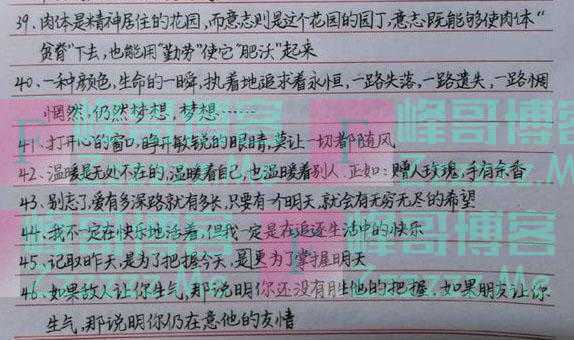 39、肉体是精神居住的花园,而意志则是这个花园的园丁,意志既能够使肉体“
贫脊”下去,也能用“勤劳”使它“肥沃”起来
40、一种颜色,生命的一瞬,执着地追求着永恒,一路失落,一路遗失,一路惆
惘然,仍然梦想,梦想……
41、打开心的窗口,睁开敏锐的眼睛,莫让一切都随风
42、温暖是无处不在的,温暖着自己,也温暖着别人.正如:赠人玫瑰,手有余香
43、别忘了,爱有多深路就有多长,只要有个明天,就会有无穷无尽的希望
44、我不一定在快乐地活着,但我一定是在追逐生活中的快乐
45、记取昨天,是为了把握今天,是更为了掌握明天
46、如果敌人让你生气,那说明你还没有胜他的把握,如果朋友让你
生气,那说明你仍在意他的友情
峰哥博客
峰哥博客
峰哥博客
峰哥博客